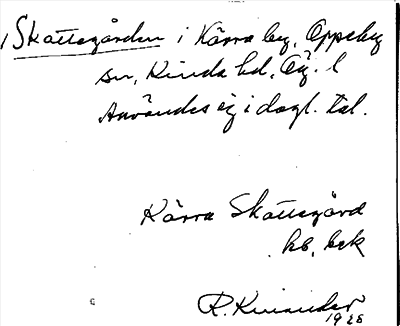 Skattegården i Kärra by, Oppeby
sn, Kinda hd, Ög. l
Användes ej i dagl. tal.
Kärra Skattegård
kb, bek
R. Kinander
1928